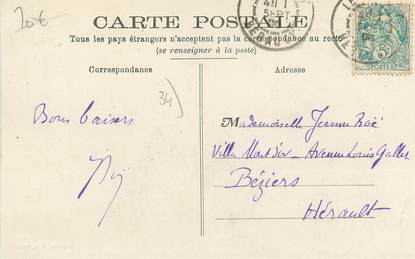 20€
CARTE POSTALE
Tous les pays étrangers n'acceptent pas la correspondance au recto
(se renseigner à la poste)
Correspondance
Adresse
34
Bons baisers
Mademoiselle Jeanne
Villa Mont d'or - Avenue Louis Galles
Béziers
Hérault